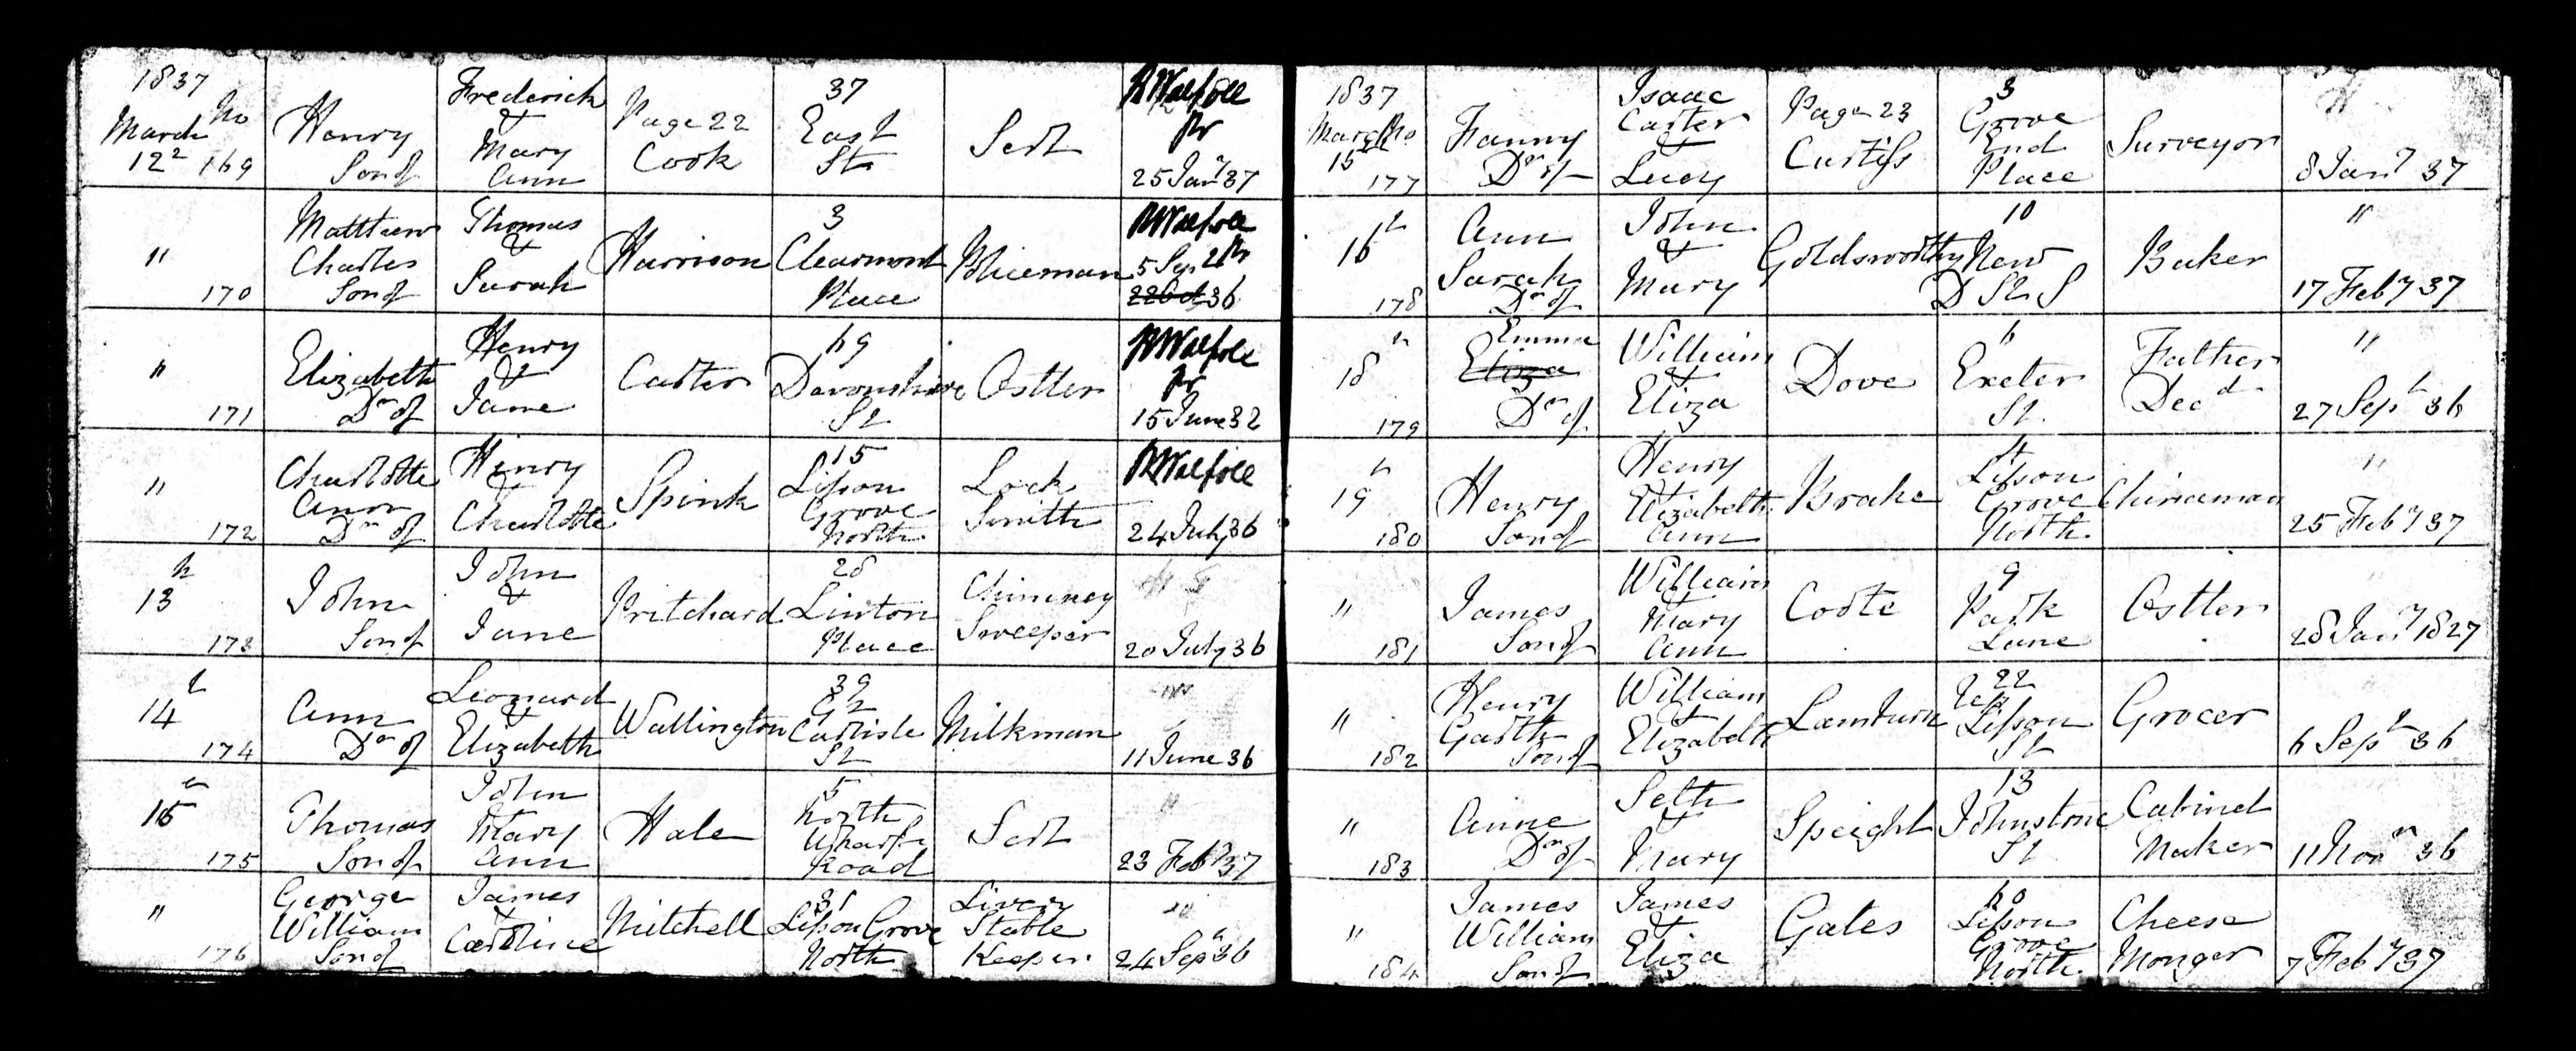 1837
March No
12 169
Henry
Son of
Frederick
&
Mary
Ann
Page 22
Cook
37
East
St
Sert
R Walpole
Pr
25 Jany 37
"
170
Matthew
Charles
Son of
Thomas
&
Sarah
Harrison
3
Clearmont
Place
Policeman
R Walpole
5 Sep Pr
22 Oct 36
"
171
Elizabeth
Dr of
Henry
&
Jane
Carter
69
Devonshire
St
Ostler
R Walpole
Pr
15 June 32
"
172
Charlotte
Ann
Dr of
Henry
&
Charlotte
Spink
15
Lisson
Grove
North
Lock
Smith
R Walpole
24 July 36
13
173
John
Son of
John
&
Jane
Pritchard
28
Linton
Place
Chimney
Sweeper
20 July 36
14
174
Ann
Dr of
Leonard
&
Elizabeth
Wallington
39
Gt
Carlisle
St
Milkman
11 June 36
15
175
Thomas
Son of
John
&
Mary
Ann
Hale
5
North
Wharf
Road
Sert
23 Feby 37
"
176
George
William
Son of
James
&
Caroline
Mitchell
31
Lisson Grove
North
Livery
Stable
Keeper
24 Sep 36
1837
March No
15
177
Fanny
Dr of
Isaac
Carter
&
Lucy
Page 23
Curtiss
3
Grove
End
Place
Surveyor
8 Jany 37
16
178
Ann
Sarah
Dr of
John
&
Mary
Goldsworthy
10
New
D St S
Baker
"
17 Feby 37
18
179
Emma
Eliza
Dr of
William
&
Eliza
Dove
6
Exeter
St
Father
Decd
"
27 Sept 36
19
180
Henry
Son of
Henry
&
Elizabeth
Ann
Brake
4
Lisson
Grove
North
Chinaman
"
25 Feby 37
"
181
James
Son of
William
&
Mary
Ann
Coote
9
Park
Lane
Ostler
28 Jany 1827
"
182
Henry
Garth
Son of
William
&
Elizabeth
22
Upr
Lisson
St
Grocer
6 Sept 36
"
183
Anne
Dr of
Seth
&
Mary
Speight
13
Johnstone
St
Cabinet
Maker
11 Novr 36
"
184
James
William
Son of
James
&
Eliza
Gates
60
Lisson
Grove
North
Cheese
Monger
7 Feby 37